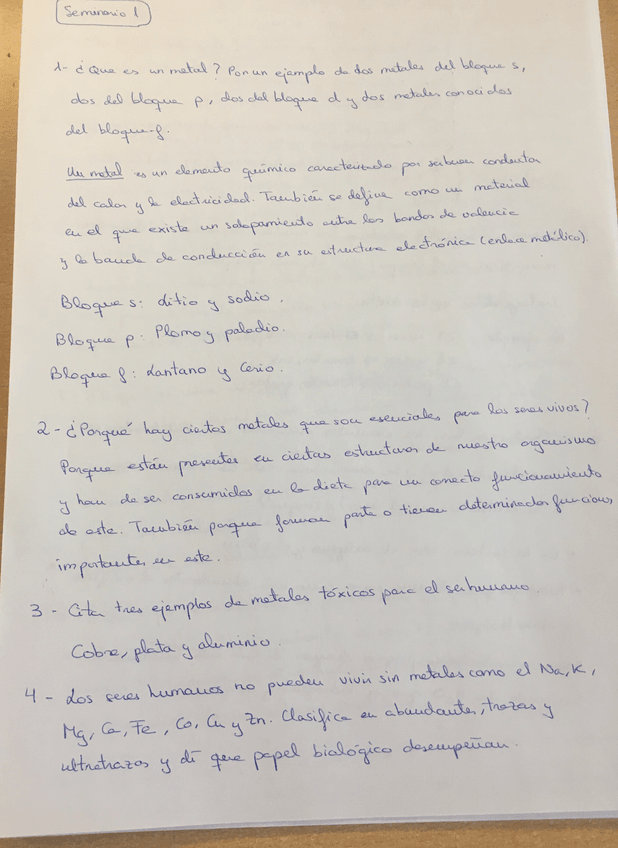 Seminario 1
1- ¿Que es un metal? Pon un ejemplo de dos metales del bloque s,
dos del bloque p, dos del bloque d y dos metales conocidos
del bloque f.
Un metal es un elemento químico caracterizado por ser buen conductor
del calor y la electricidad. También se define como un material
en el que existe un solapamiento entre las bandas de valencia
y la banda de conducción en su estructura electrónica (enlace metálico).
Bloque s: Litio y sodio.
Bloque p: Plomo y paladio.
Bloque f: Lantano y Cerio.
2- ¿Porqué hay ciertos metales que son esenciales para los seres vivos?
Porque están presentes en ciertas estructuras de nuestro organismo
y han de ser consumidos en la dieta para un correcto funcionamiento
de este. También porque forman parte o tienen determinadas funciones
importantes en este.
3- Cita tres ejemplos de metales tóxicos para el ser humano.
Cobre, plata y aluminio.
4- Los seres humanos no pueden vivir sin metales como el Na, K,
Mg, Ca, Fe, Co, Cu y Zn. Clasifica en abundantes, trazas y
ultratrazas y di que papel biológico desempeñan.